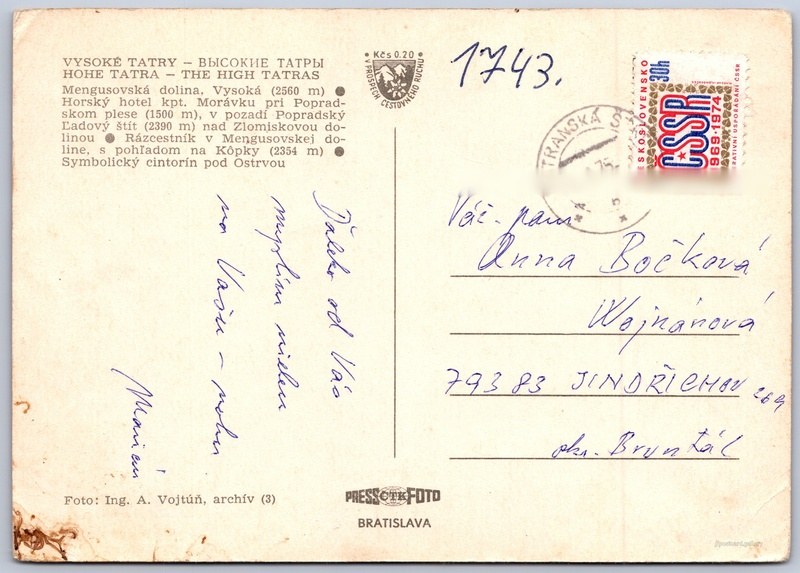 VYSOKÉ TATRY – ВЫСОКИЕ ТАТРЫ
HOHE TATRA – THE HIGH TATRAS
Mengusovská dolina, Vysoká (2560 m) ●
Horský hotel kpt. Morávku pri Poprad-
skom plese (1500 m), v pozadí Popradský
Ľadový štít (2390 m) nad Zlomiskovou do-
linou ● Rázcestník v Mengusovskej do-
line, s pohľadom na Kôpky (2354 m) ●
Symbolický cintorín pod Ostrvou
Kčs 0.20
V PROSPECH CESTOVNÉHO RUCHU
1743.
TRANSKÁ
75
ČESKOSLOVENSKO
30h
ČSSR
1969-1974
FEDERATÍVNÍ USPOŘÁDÁNÍ ČSSR
Daleko od Vás
myslím nielen
na Vašu –
Váž. pani
Anna Bočková
Wojnánová
793 83 JINDŘICHOV 269
okr. Bruntál
Foto: Ing. A. Vojtúň, archív (3)
PRESS ČTK FOTO
BRATISLAVA